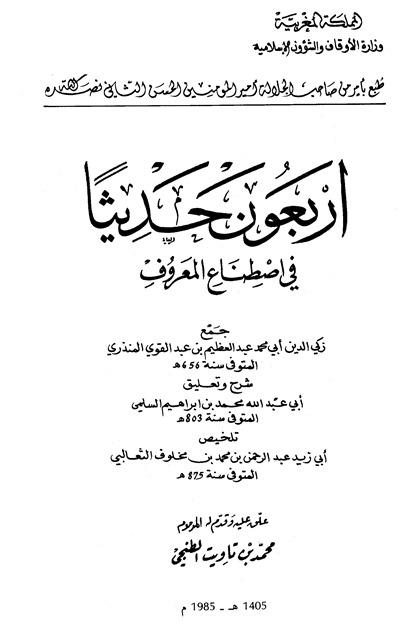 المملكة المغربية
وزارة الأوقاف والشؤون الإسلامية
طبع بأمر من صاحب الجلالة أمير المؤمنين الحسن الثاني نصره الله
أربعون حديثًا
في اصطناع المعروف
جمع
زكي الدين أبي محمد عبد العظيم بن عبد القوي المنذري
المتوفى سنة 656 هـ
شرح وتعليق
أبي عبد الله محمد بن ابراهيم السلمي
المتوفى سنة 803 هـ
تلخيص
أبي زيد عبد الرحمن بن محمد بن مخلوف الثعالبي
المتوفى سنة 875 هـ
علق عليه وقدم له المرحوم
محمد بن تاويت الطنجي
1405 هـ - 1985 م